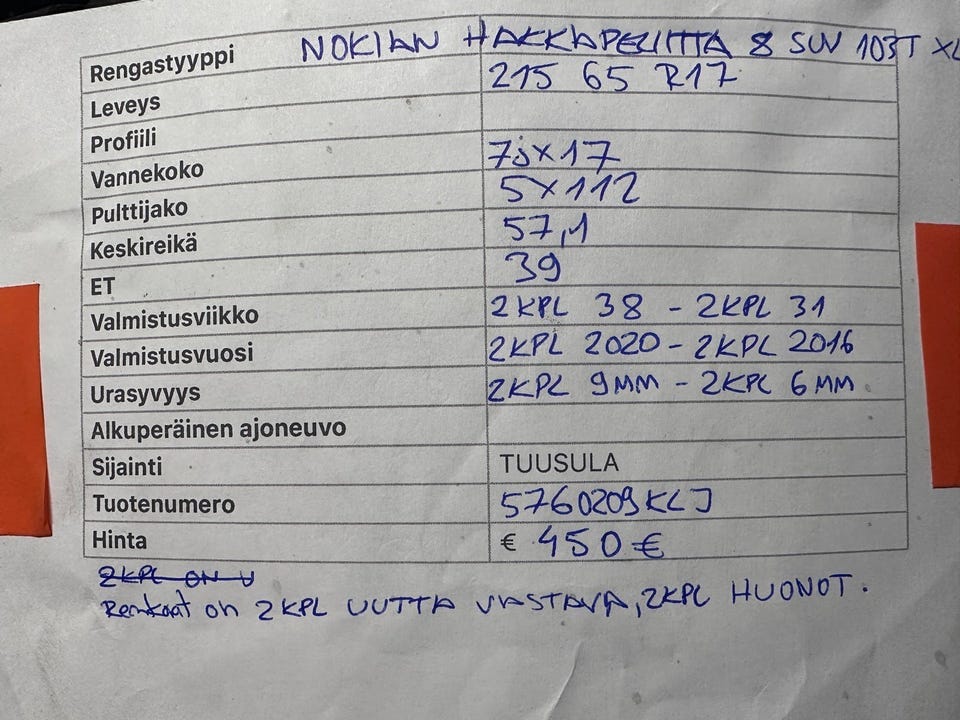 Rengastyyppi NOKIAN HAKKAPELIITTA 8 SUV 103T XL
Leveys 215 65 R17
Profiili
Vannekoko 7j×17
Pulttijako 5×112
Keskireikä 57,1
ET 39
Valmistusviikko 2KPL 38 - 2KPL 31
Valmistusvuosi 2KPL 2020 - 2KPL 2016
Urasyvyys 2KPL 9MM - 2KPL 6MM
Alkuperäinen ajoneuvo
Sijainti TUUSULA
Tuotenumero 5760209KLJ
Hinta € 450€
2KPL ON U
Renkaat on 2KPL UUTTA VASTAVA, 2KPL HUONOT.